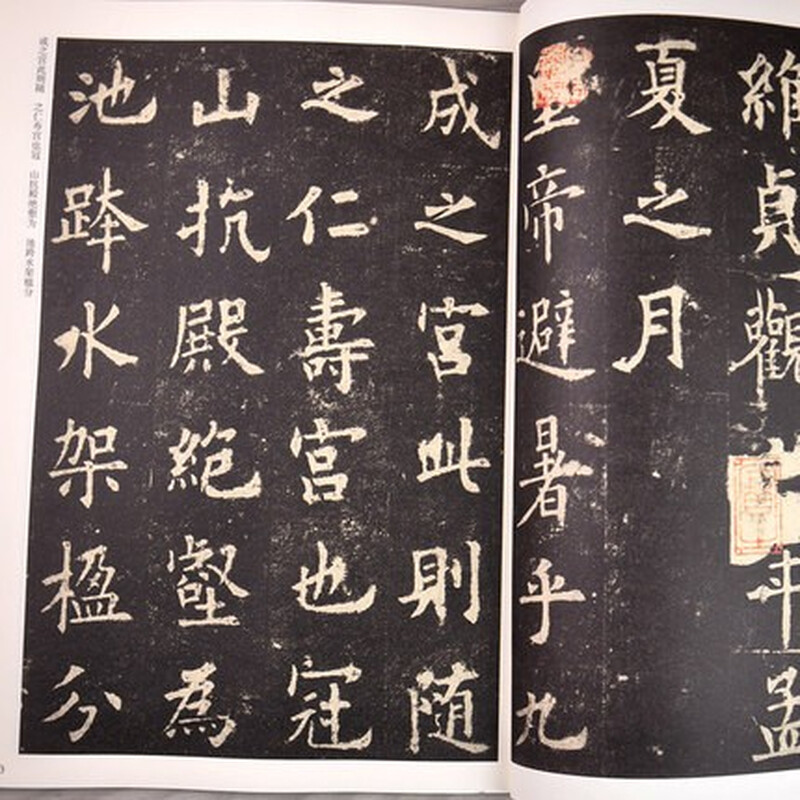 維貞觀六年孟
夏之月
皇帝避暑乎九
成之宮此則随
之仁壽宮也冠
山抗殿絕壑為
池跨水架楹分
成之宫此则随 之仁寿宫也冠 山抗殿绝壑为 池跨水架楹分